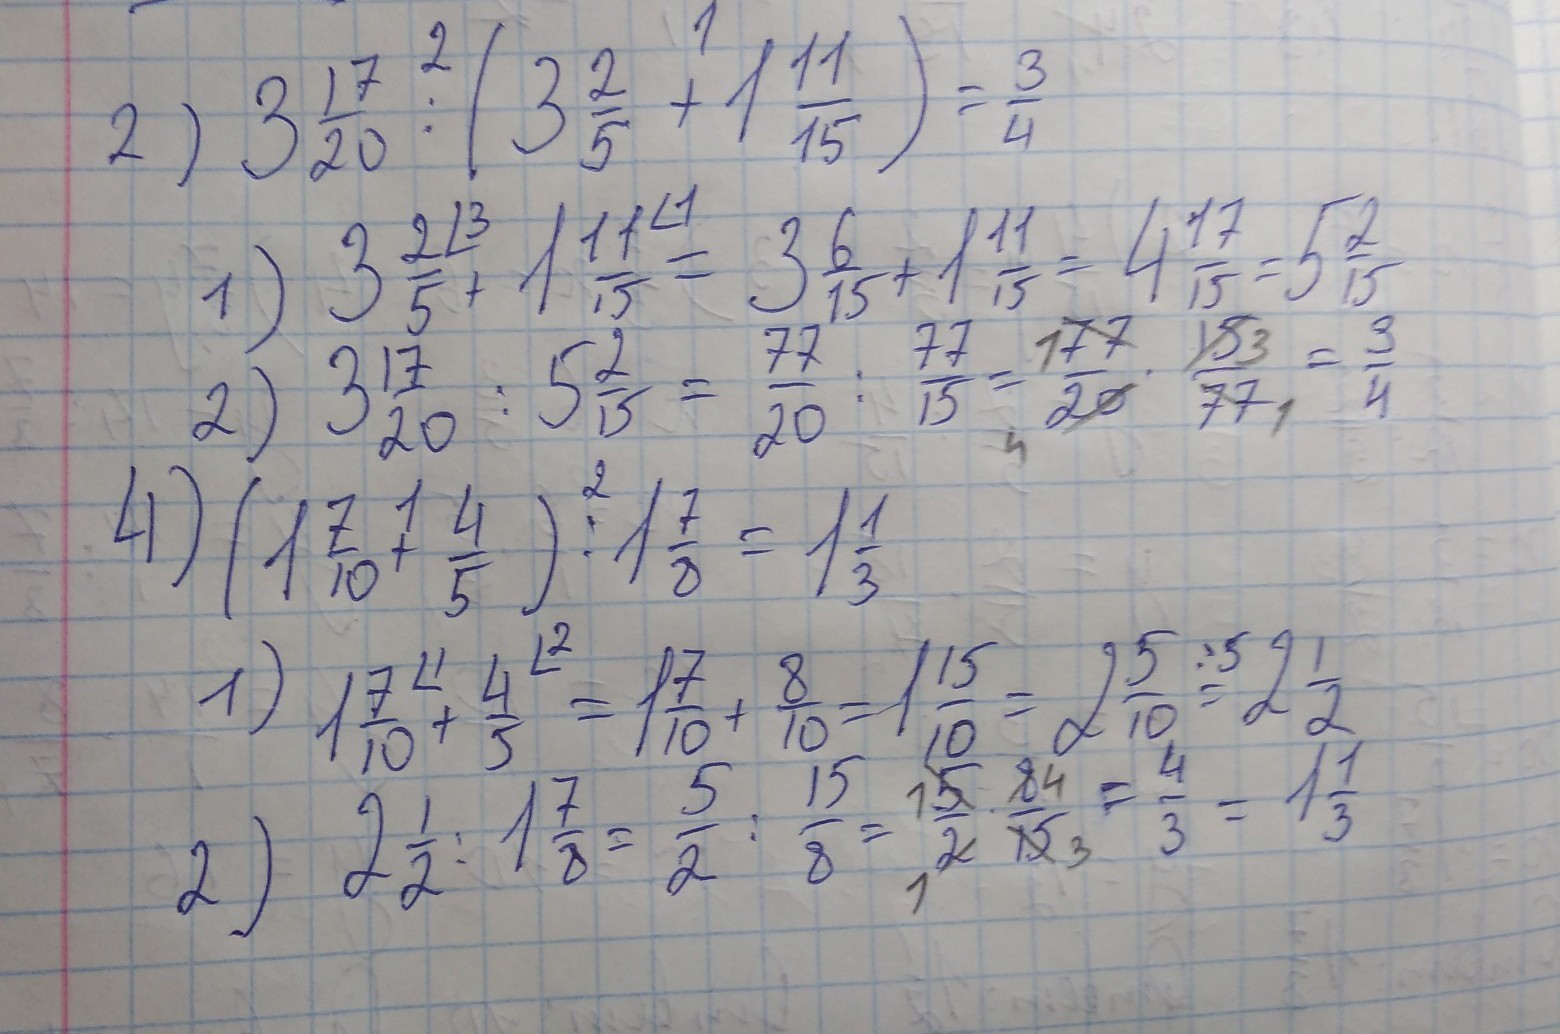 2) 3 17/20 :² (3 2/5 +¹ 1 11/15) = 3/4
1) 3 2/5 ∟3 + 1 11/15 ∟1 = 3 6/15 + 1 11/15 = 4 17/15 = 5 2/15
2) 3 17/20 : 5 2/15 = 77/20 : 77/15 = 1 77/20 4 · 15 3/77 1 = 3/4
4) (1 7/10 +¹ 4/5) :² 1 7/8 = 1 1/3
1) 1 7/10 ∟1 + 4/5 ∟2 = 1 7/10 + 8/10 = 1 15/10 = 2 5/10 :5 = 2 1/2
2) 2 1/2 : 1 7/8 = 5/2 : 15/8 = 1 5/2 1 · 8 4/15 3 = 4/3 = 1 1/3